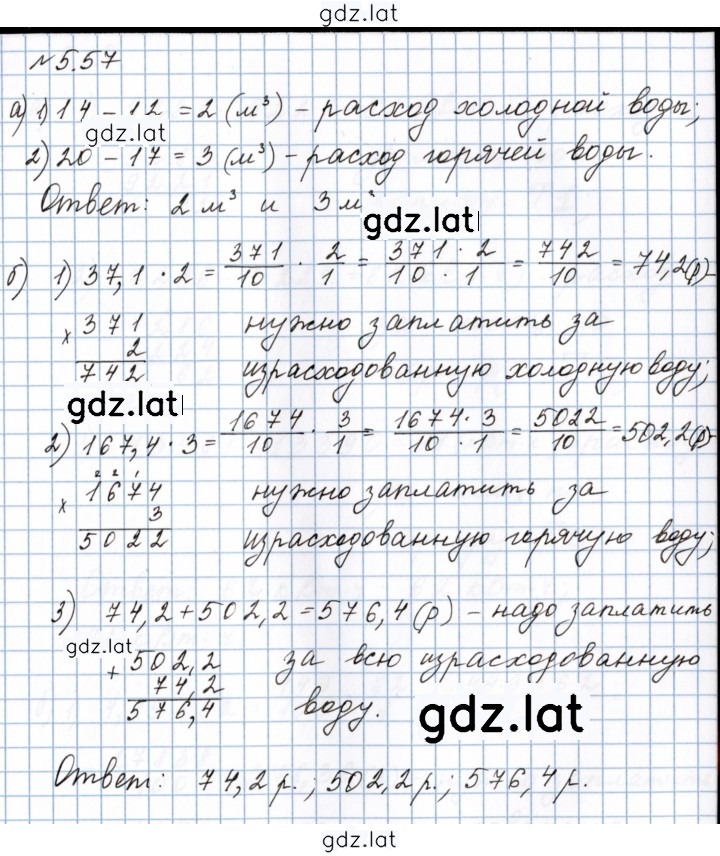 gdz.lat
№ 5.57
а) 1) 14 – 12 = 2 (м³) – расход холодной воды;
gdz.lat
2) 20 – 17 = 3 (м³) – расход горячей воды.
Ответ: 2 м³ и 3 м³
gdz.lat
б) 1) 37,1 · 2 = 371/10 · 2/1 = 371 · 2/10 · 1 = 742/10 = 74,2 (р) –
× 371 нужно заплатить за
2
742 израсходованную холодную воду;
gdz.lat
2) 167,4 · 3 = 1674/10 · 3/1 = 1674 · 3/10 · 1 = 5022/10 = 502,2 (р) –
2 2 1
× 1674 нужно заплатить за
3
5022 израсходованную горячую воду;
3) 74,2 + 502,2 = 576,4 (р) – надо заплатить
gdz.lat
+ 502,2 за всю израсходованную
74,2
576,4 воду.
gdz.lat
Ответ: 74,2 р.; 502,2 р.; 576,4 р.
gdz.lat